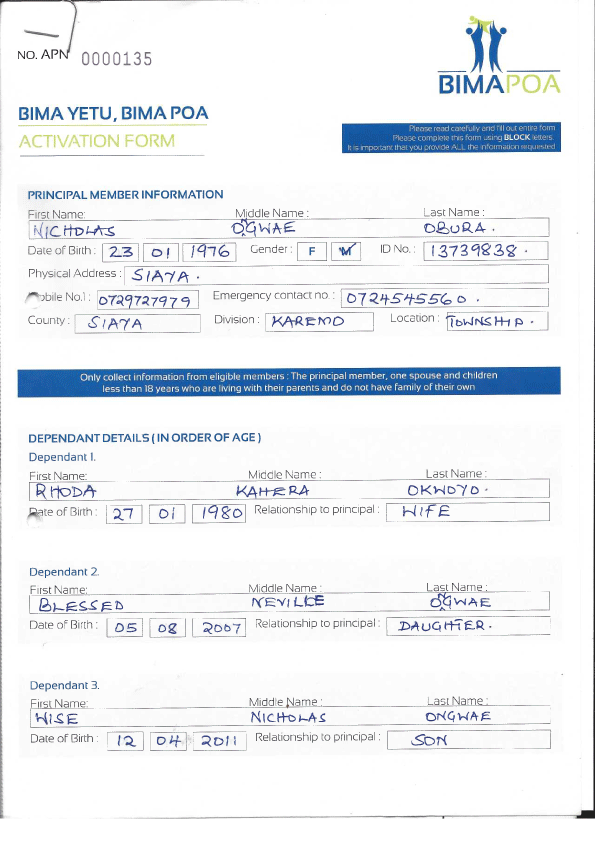 NO. APN 0000135
BIMAPOA
BIMA YETU, BIMA POA
ACTIVATION FORM
Please read carefully and fill out entire form
Please complete this form using BLOCK letters.
It is important that you provide ALL the information requested
PRINCIPAL MEMBER INFORMATION
First Name: Middle Name : Last Name :
NICHOLAS OGWAE OBURA.
Date of Birth : 23 01 1976 Gender : F M ID No. : 13739838.
Physical Address : SIAYA.
Mobile No.1 : 0729727979 Emergency contact no. : 0724545560.
County : SIAYA Division : KAREMO Location : TOWNSHIP.
Only collect information from eligible members : The principal member, one spouse and children
less than 18 years who are living with their parents and do not have family of their own
DEPENDANT DETAILS ( IN ORDER OF AGE )
Dependant 1.
First Name: Middle Name : Last Name :
RHODA KAHERA OKWOYO.
Date of Birth : 27 01 1980 Relationship to principal : WIFE
Dependant 2.
First Name: Middle Name : Last Name :
BLESSED NEVILLE OGWAE
Date of Birth : 05 08 2007 Relationship to principal : DAUGHTER.
Dependant 3.
First Name: Middle Name : Last Name :
WISE NICHOLAS ONGWAE
Date of Birth : 12 04 2011 Relationship to principal : SON